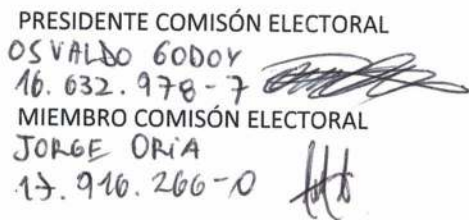 PRESIDENTE COMISÓN ELECTORAL
OSVALDO GODOY
16.632.978-7
MIEMBRO COMISÓN ELECTORAL
JORGE ORiA
17.916.266-0